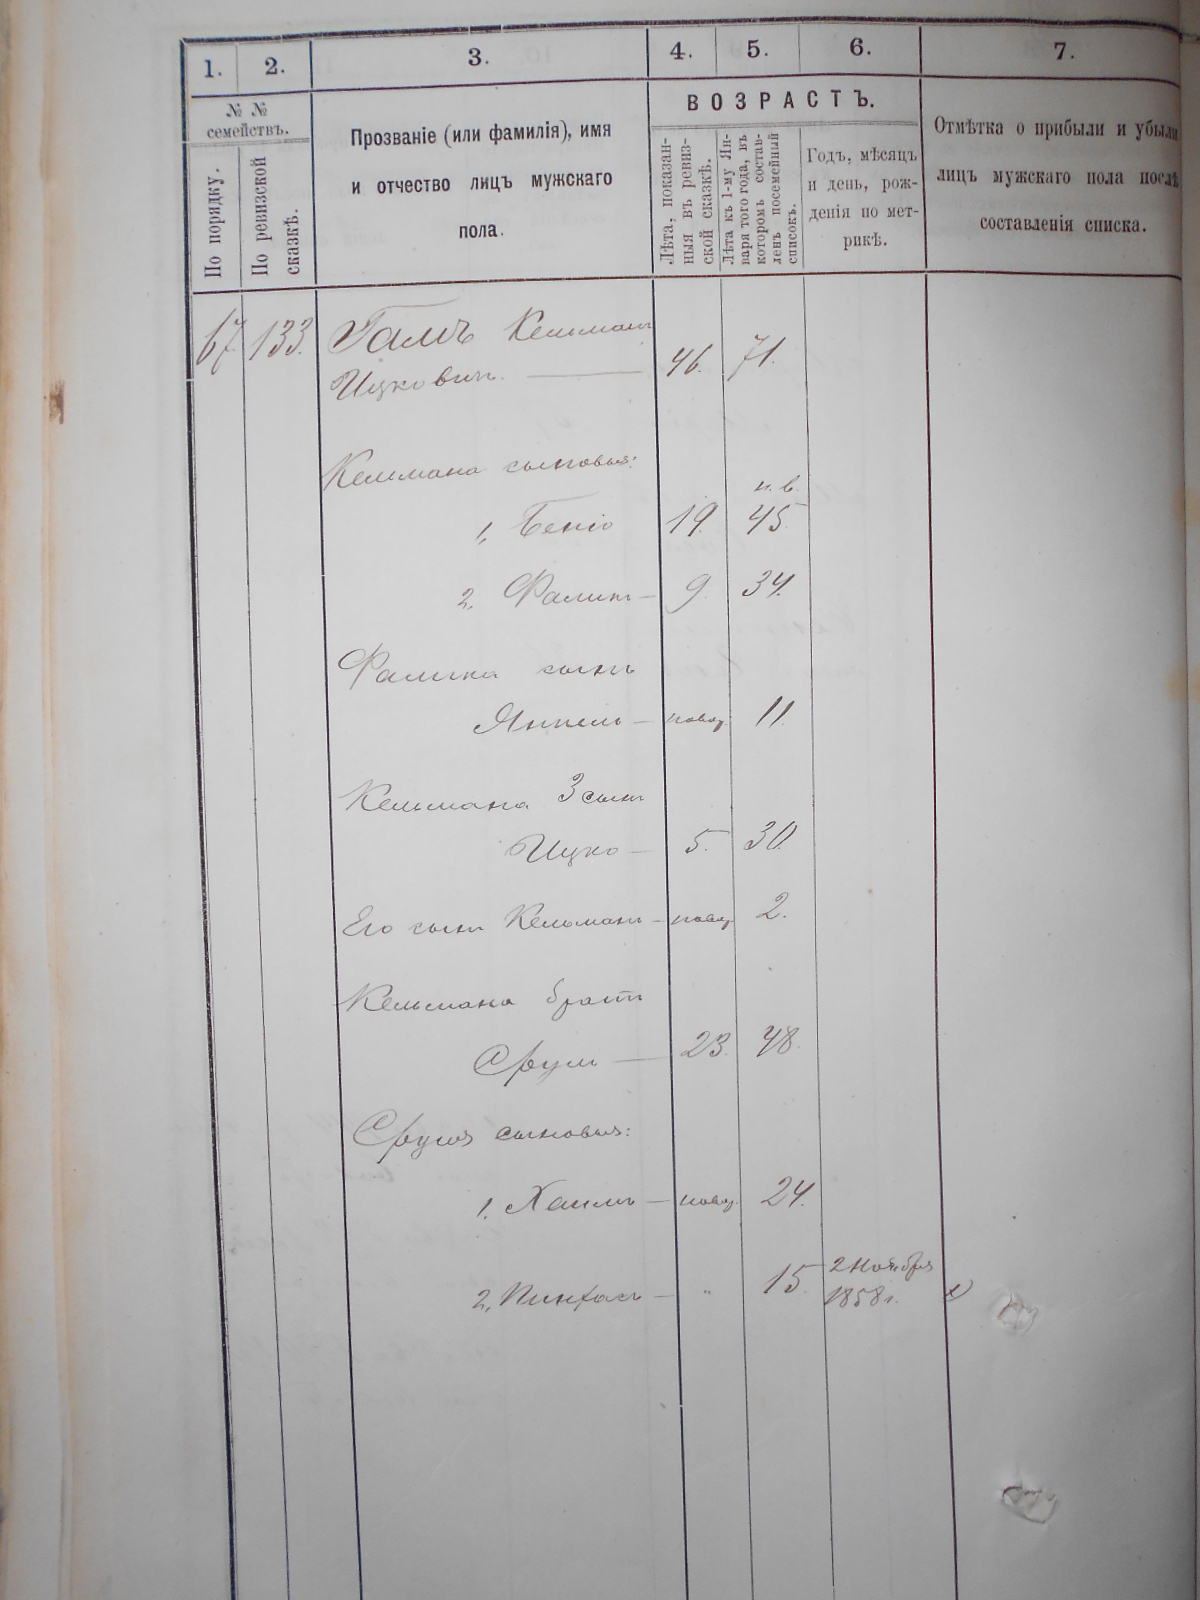 1. 2. 3. 4. 5. 6. 7.
№ №
семействъ.
По порядку.
По ревизской
сказкѣ.
Прозваніе (или фамилія), имя
и отчество лицъ мужскаго
пола.
ВОЗРАСТЪ.
Лѣта, показан-
ныя въ ревиз-
ской сказкѣ.
Лѣта къ 1-му Ян-
варя того года, въ
которомъ состав-
ленъ посемейный
списокъ.
Годъ, мѣсяцъ
и день, рож-
денія по мет-
рикѣ.
Отмѣтка о прибыли и убыли
лицъ мужскаго пола послѣ
составленія списка.
67 133. Гамъ Кельманъ
Ицковичъ. — 46. 71.
Кельмана сыновья:
н. в.
1, Бенiо 19. 45.
2, Фаликъ — 9. 34.
Фалика сынъ
Янкель — новор. 11.
Кельмана 3 сынъ
Ицко — 5. 30.
Его сынъ Кельманъ — новор. 2.
Кельмана братъ
Срулъ — 23. 48.
Сруля сыновья:
1. Хаимъ — новор. 24.
2, Пинхасъ — " 15 2 Ноября
1858 г.